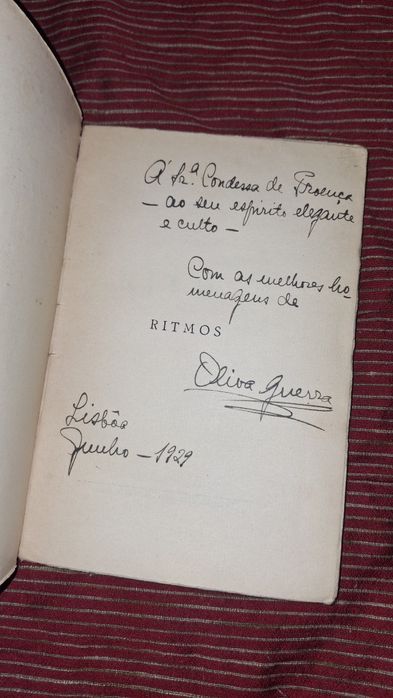 Á Sr.ª Condessa de Proença
— ao seu espirito elegante
e culto —
Com as melhores ho-
menagens de
RITMOS
Oliva Guerra
Lisbôa
Junho — 1929